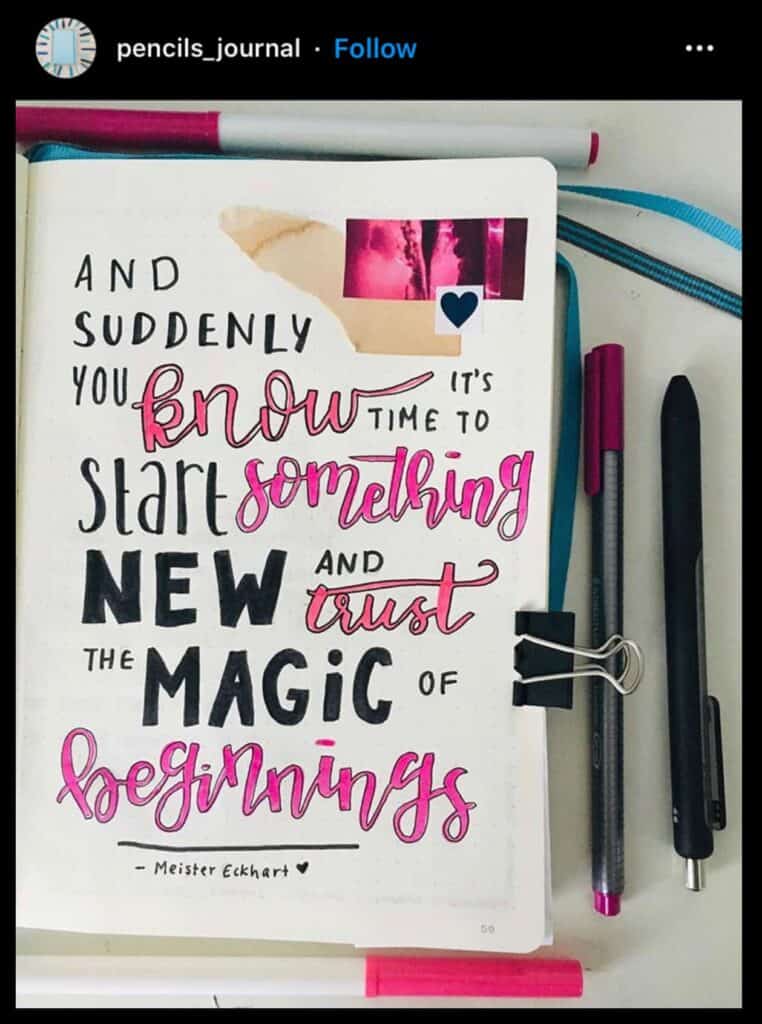 pencils_journal · Follow
AND
SUDDENLY
YOU know IT'S
TIME TO
start something
NEW AND trust
THE MAGiC OF
beginnings
- Meister Eckhart ♥
50